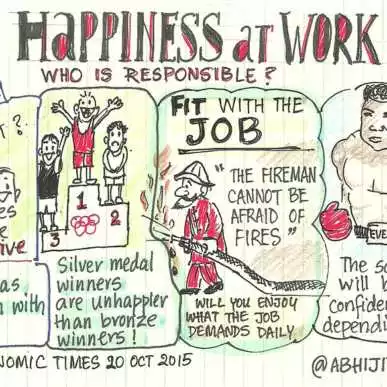 HAPPINESS AT WORK
WHO IS RESPONSIBLE?
T?
es
e
ive
as
n with
1
2
3
Silver medal
winners
are unhappier
than bronze
winners!
FIT WITH THE
JOB
"THE FIREMAN
CANNOT BE
AFRAID OF
FIRES"
WILL YOU ENJOY
WHAT THE JOB
DEMANDS DAILY
EVE
The so
will b
confide
depend
NOMIC TIMES 20 OCT 2015
@ABHIJI